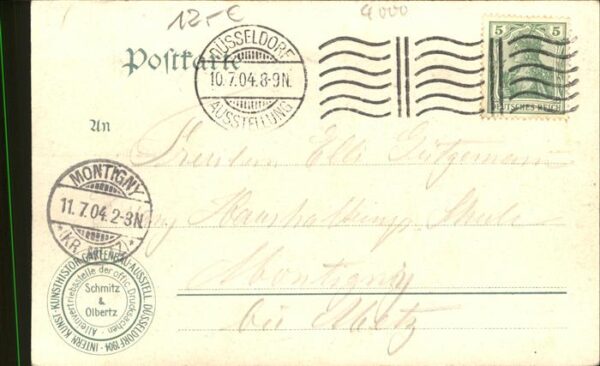 12.-€
4000
Postkarte
DÜSSELDORF
10.7.04.8-9N.
AUSSTELLUNG
5 5
DEUTSCHES REICH
An
Fräulein Elli
MONTIGNY
11.7.04.2-3N
Haushaltungs Schule
Montigny
bei Metz
INTERN. KUNST-KUNSTHISTOR. GARTENBAU-AUSSTELL. DÜSSELDORF 1904
Alleinvertriebsstelle der offic. Drucksachen
Schmitz
&
Olbertz